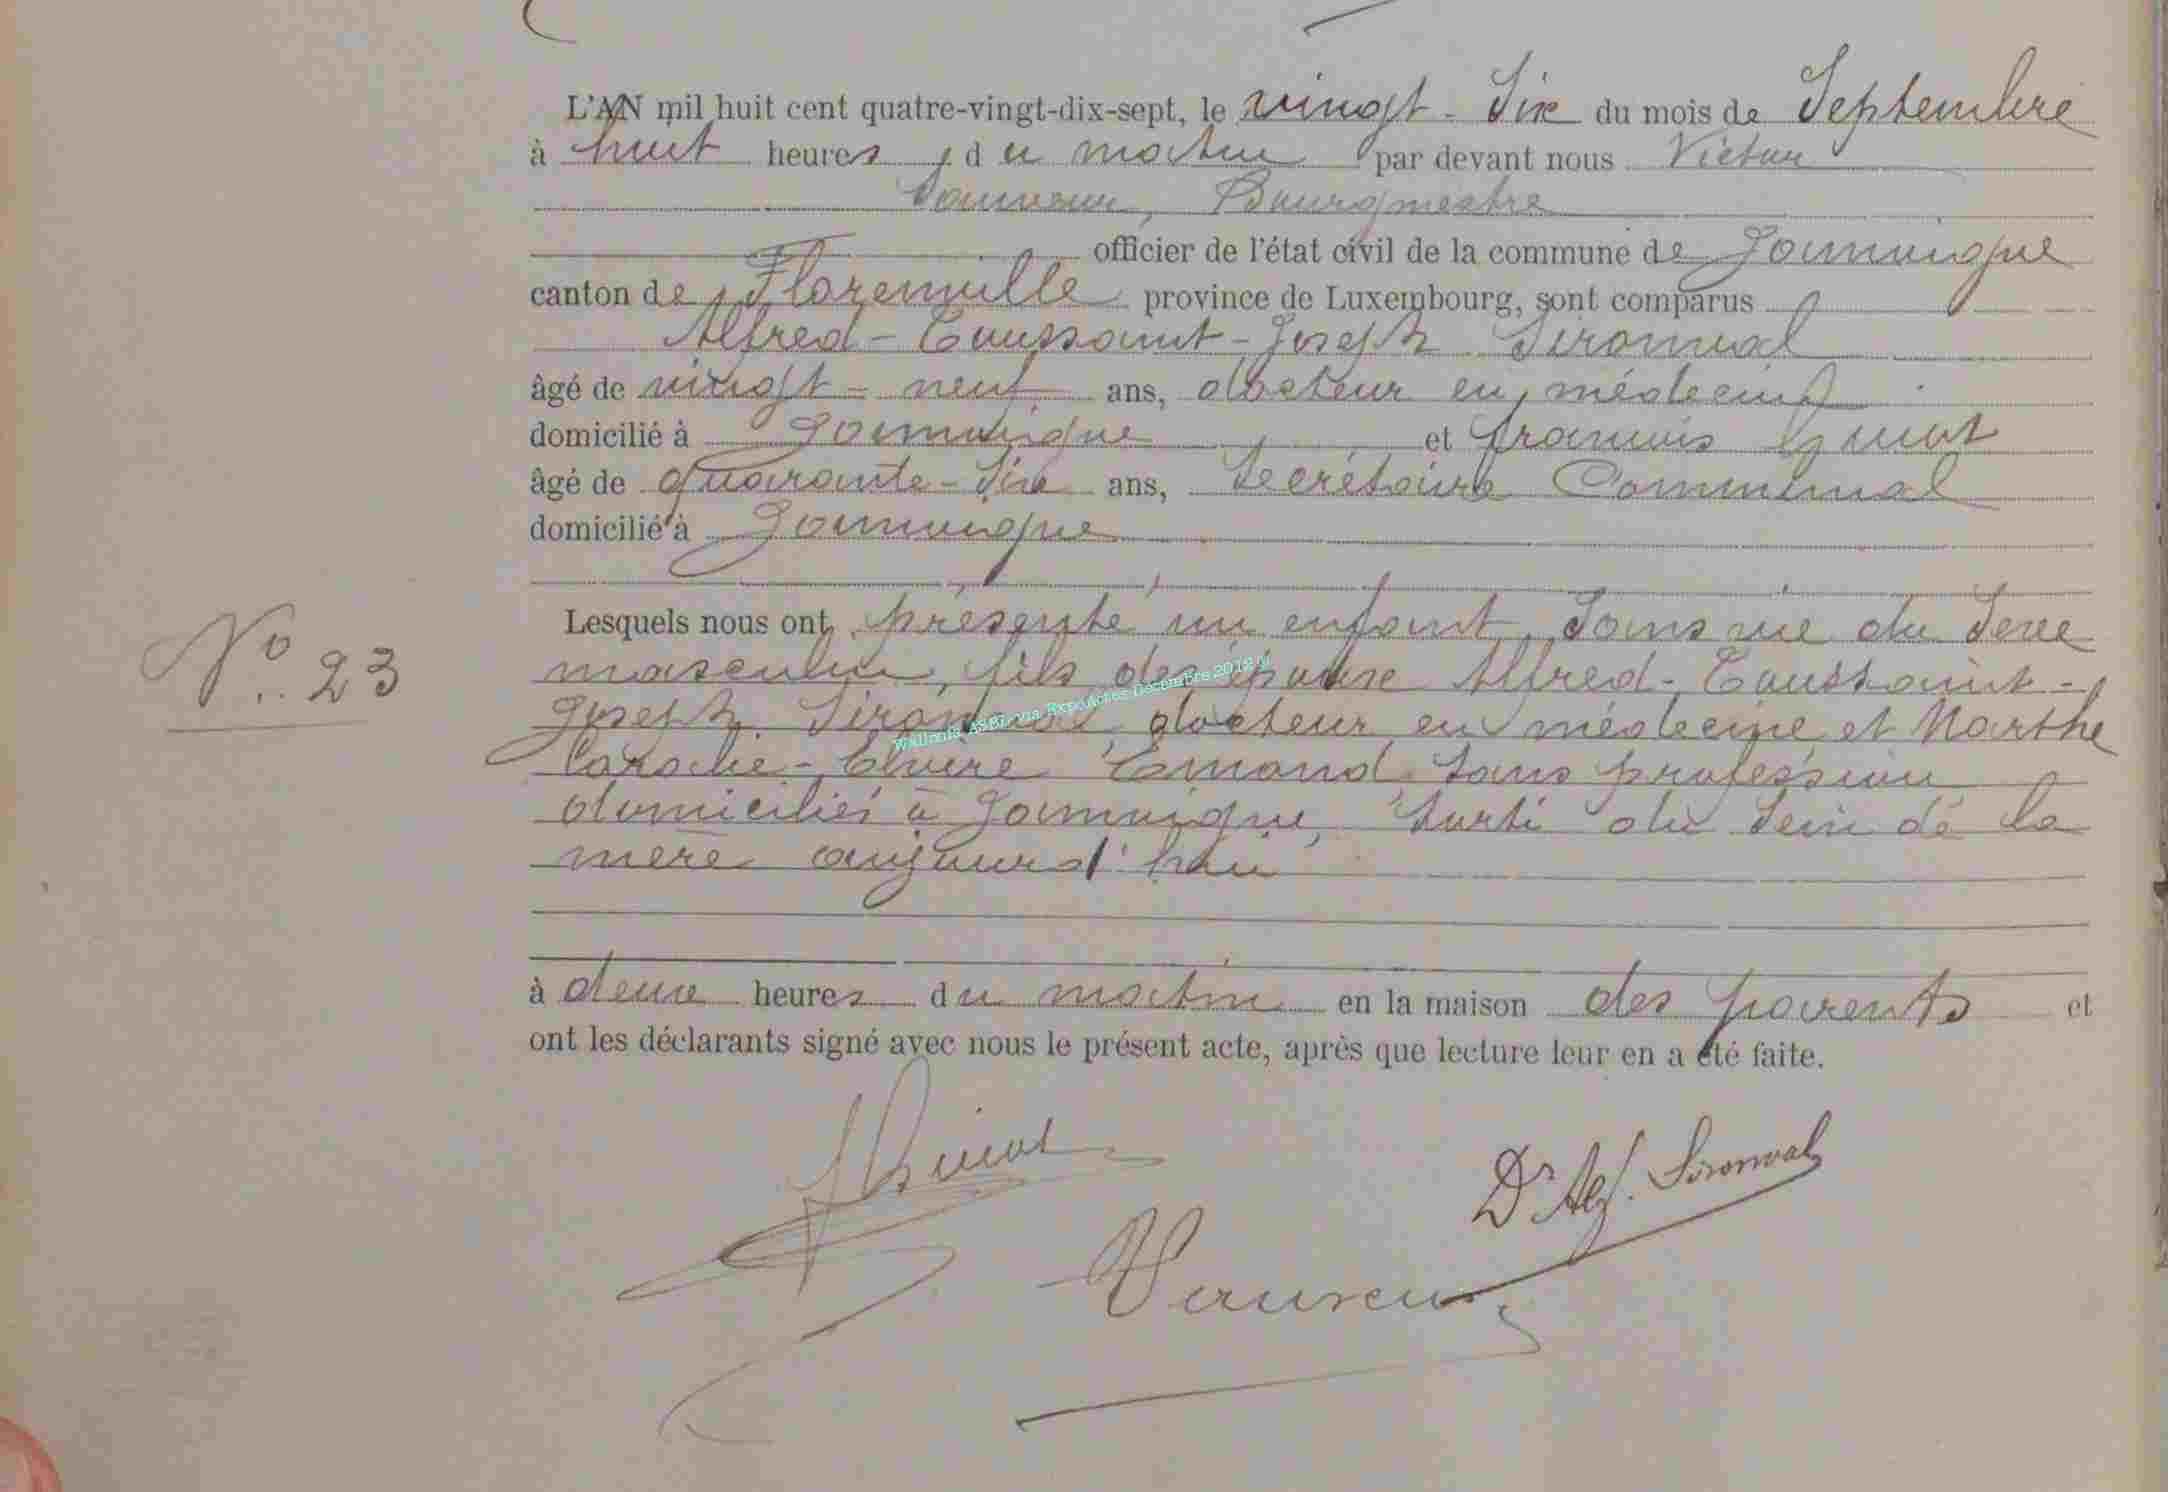 L'AN mil huit cent quatre-vingt-dix-sept, le vingt-Six du mois de Septembre
à huit heures du matin par devant nous Victor
Bourgmestre
officier de l'état civil de la commune de Jamoigne
canton de Florenville province de Luxembourg, sont comparus
Alfred-Toussaint-Joseph Sironval
âgé de vingt-neuf ans, docteur en médecine
domicilié à Jamoigne et François
âgé de quarante-Six ans, Secrétaire Communal
domicilié à Jamoigne
N° 23
Lesquels nous ont présenté un enfant Sans vie du Sexe
masculin, fils des époux Alfred-Toussaint-
Joseph Sironval docteur en médecine et Marthe
Emond Sans profession
domiciliés à Jamoigne, Sorti du Sein de la
mère aujourd'hui
Wallonia ASBL via ExpoActes Decembre 2012
à deux heures du matin en la maison des parents et
ont les déclarants signé avec nous le présent acte, après que lecture leur en a été faite.
Dr Alf. Sironval